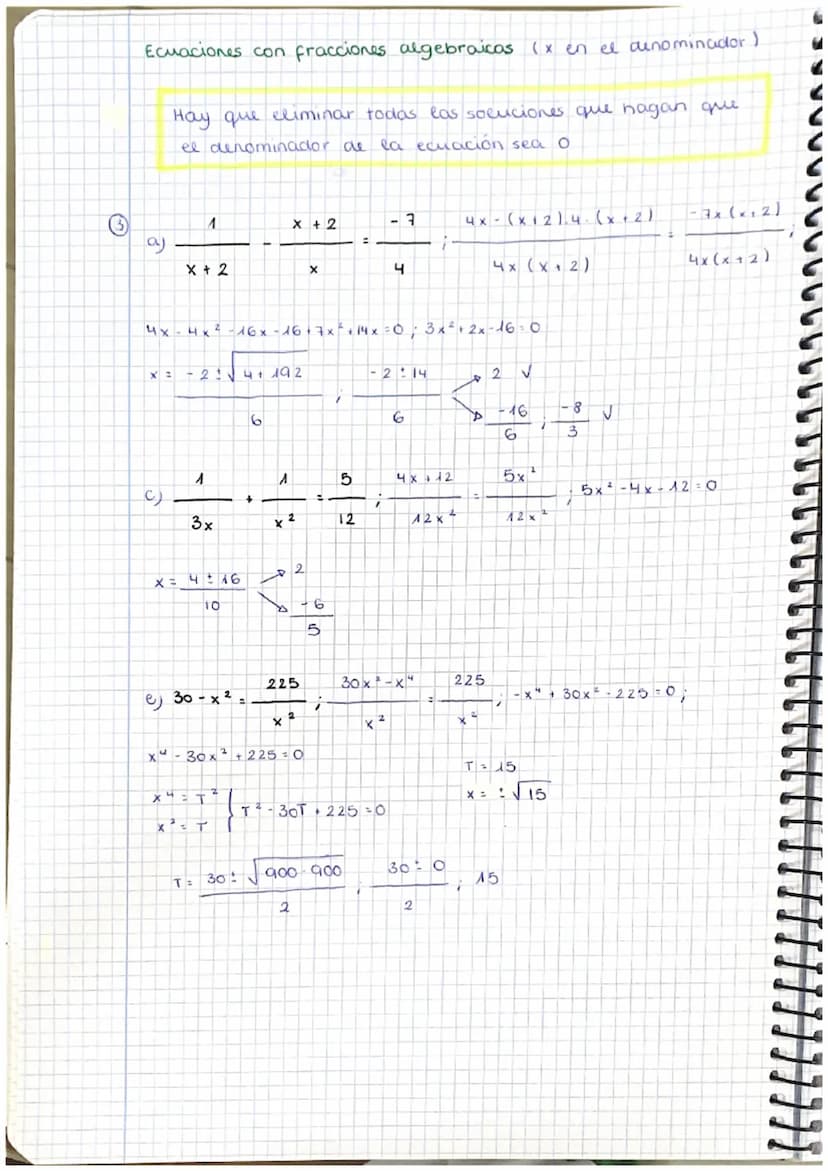 Ecuaciones con fracciones algebraicas (x en el denominador)
Hay que eliminar todas las soluciones que hagan que
el denominador de la ecuación sea 0
③
a) 1/(x+2) - (x+2)/x = -7/4 ; (4x-(x+2).4.(x+2))/(4x(x+2)) = (-7x(x+2))/(4x(x+2)) ;
4x-4x²-16x-16+7x²+14x=0 ; 3x²+2x-16=0
x = (-2±√(4+192))/6 ; (-2±14)/6 → 2 ✓
→ -16/6 ; -8/3 ✓
c) 1/(3x) + 1/x² = 5/12 ; (4x+12)/(12x²) = 5x²/(12x²) ; 5x²-4x-12=0
x = (4±16)/10 → 2
→ -6/5
e) 30-x² = 225/x² ; (30x²-x⁴)/x² = 225/x² ; -x⁴+30x²-225=0 ;
x⁴-30x²+225=0
T=15
x=±√15
x⁴=T²
x²=T } T²-30T+225=0
T = (30±√(900-900))/2 ; (30±0)/2 ; 15